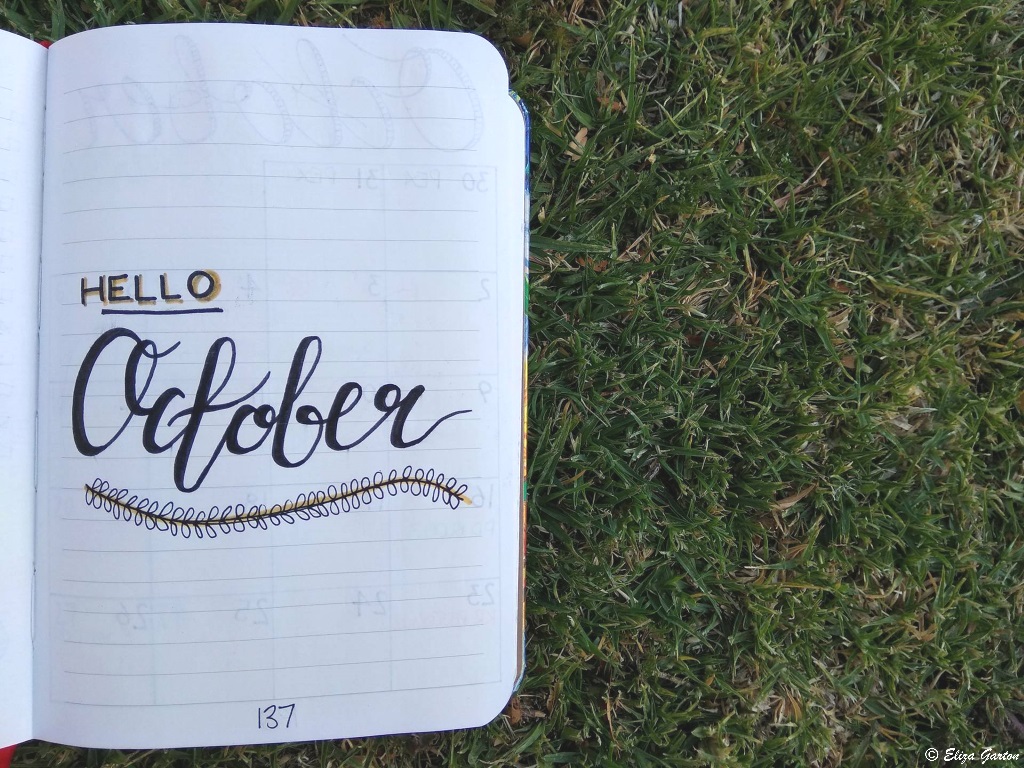 HELLO
October
137
© Eliza Garton